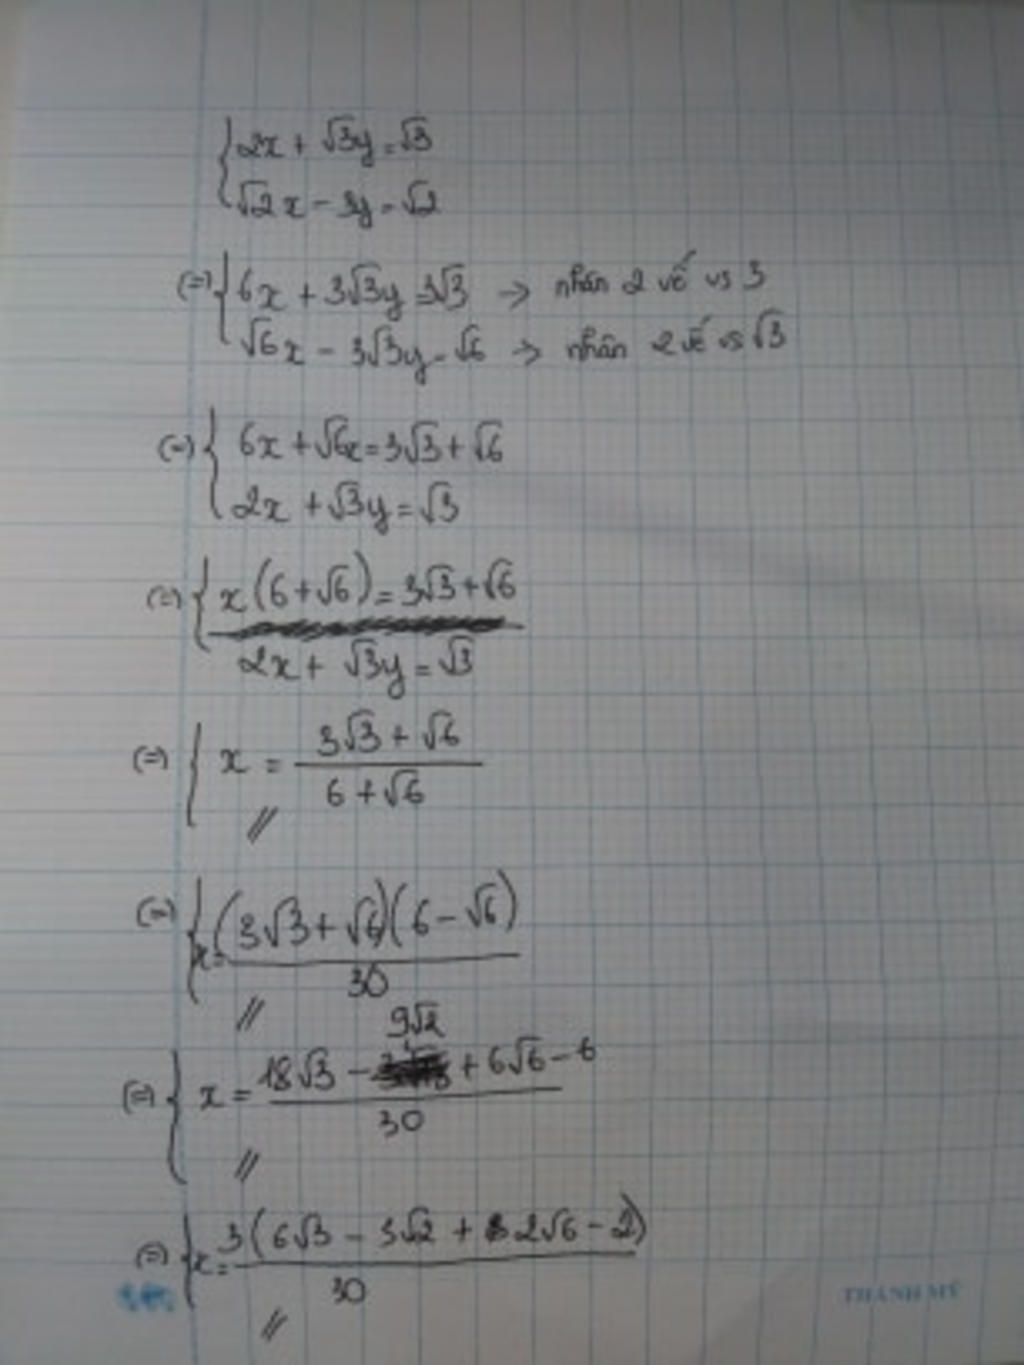 { 2x + √3y = √3
√2x - 3y = √2
(=) { 6x + 3√3y = 3√3 → nhân 2 vế vs 3
√6x - 3√3y = √6 → nhân 2 vế vs √3
(=) { 6x + √6x = 3√3 + √6
2x + √3y = √3
(=) { x(6 + √6) = 3√3 + √6
2x + √3y = √3
(=) { x = (3√3 + √6)/(6 + √6)
//
(=) { x = (3√3 + √6)(6 - √6)/30
//
(=) { x = (18√3 - 9√2 + 6√6 - 6)/30
//
(=) { x = 3(6√3 - 3√2 + 2√6 - 2)/30
//
THANH MỸ